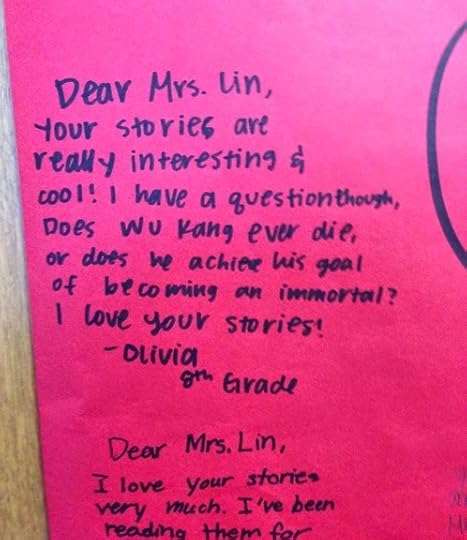 Dear Mrs. Lin,
Your stories are
really interesting &
cool! I have a question though,
Does Wu Kang ever die,
or does he achiee his goal
of becoming an immortal?
I love your stories!
- Olivia
8th Grade
Dear Mrs. Lin,
I love your stories
very much. I've been
reading them for